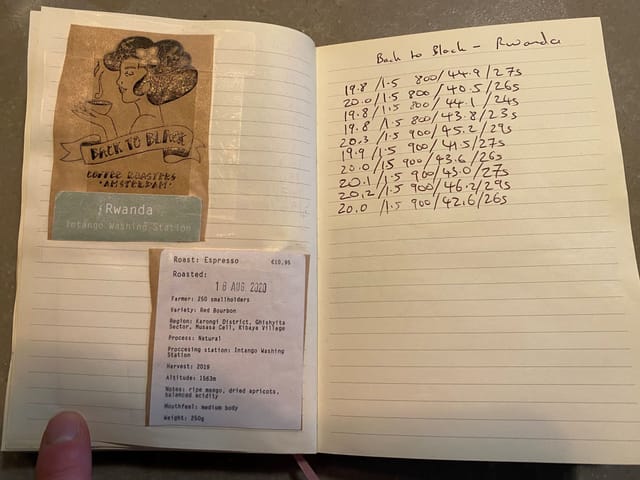 BACK TO BLACK
COFFEE ROASTERS
·AMSTERDAM·
Rwanda
Intango Washing Station
Roast: Espresso €10,95
Roasted:
18 AUG 2020
Farmer: 250 smallholders
Variety: Red Bourbon
Region: Karongi District, Ghishyita
Sector, Musasa Cell, Kibaya Village
Process: Natural
Proccesing station: Intango Washing
Station
Harvest: 2019
Altitude: 1563m
Notes: ripe mango, dried apricots,
balanced acidity
Mouthfeel: medium body
Weight: 250g
Back to Black - Rwanda
19.8 /1.5 800/44.9/27s
20.0/1.5 800/40.5/26s
19.8 /1.5 800/44.1/24s
19.8 /1.5 800/43.8/23s
20.3 /1.5 900/45.2/29s
19.9 /1.5 900/41.5/27s
20.0 /1.5 900/43.6/26s
20.1 /1.5 900/43.0/27s
20.2 /1.5 900/46.2/29s
20.0 /1.5 900/42.6/26s